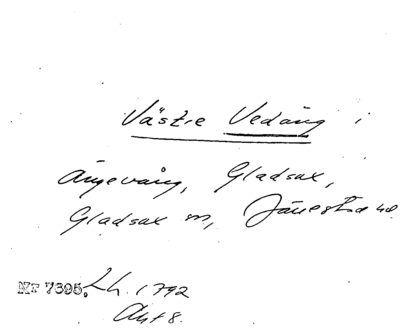 Västre Vedäng i
Ängevång, Gladsax,
Gladsax sn, Järrestads hd
NT 7395. Lh. 1792
Akt 8.